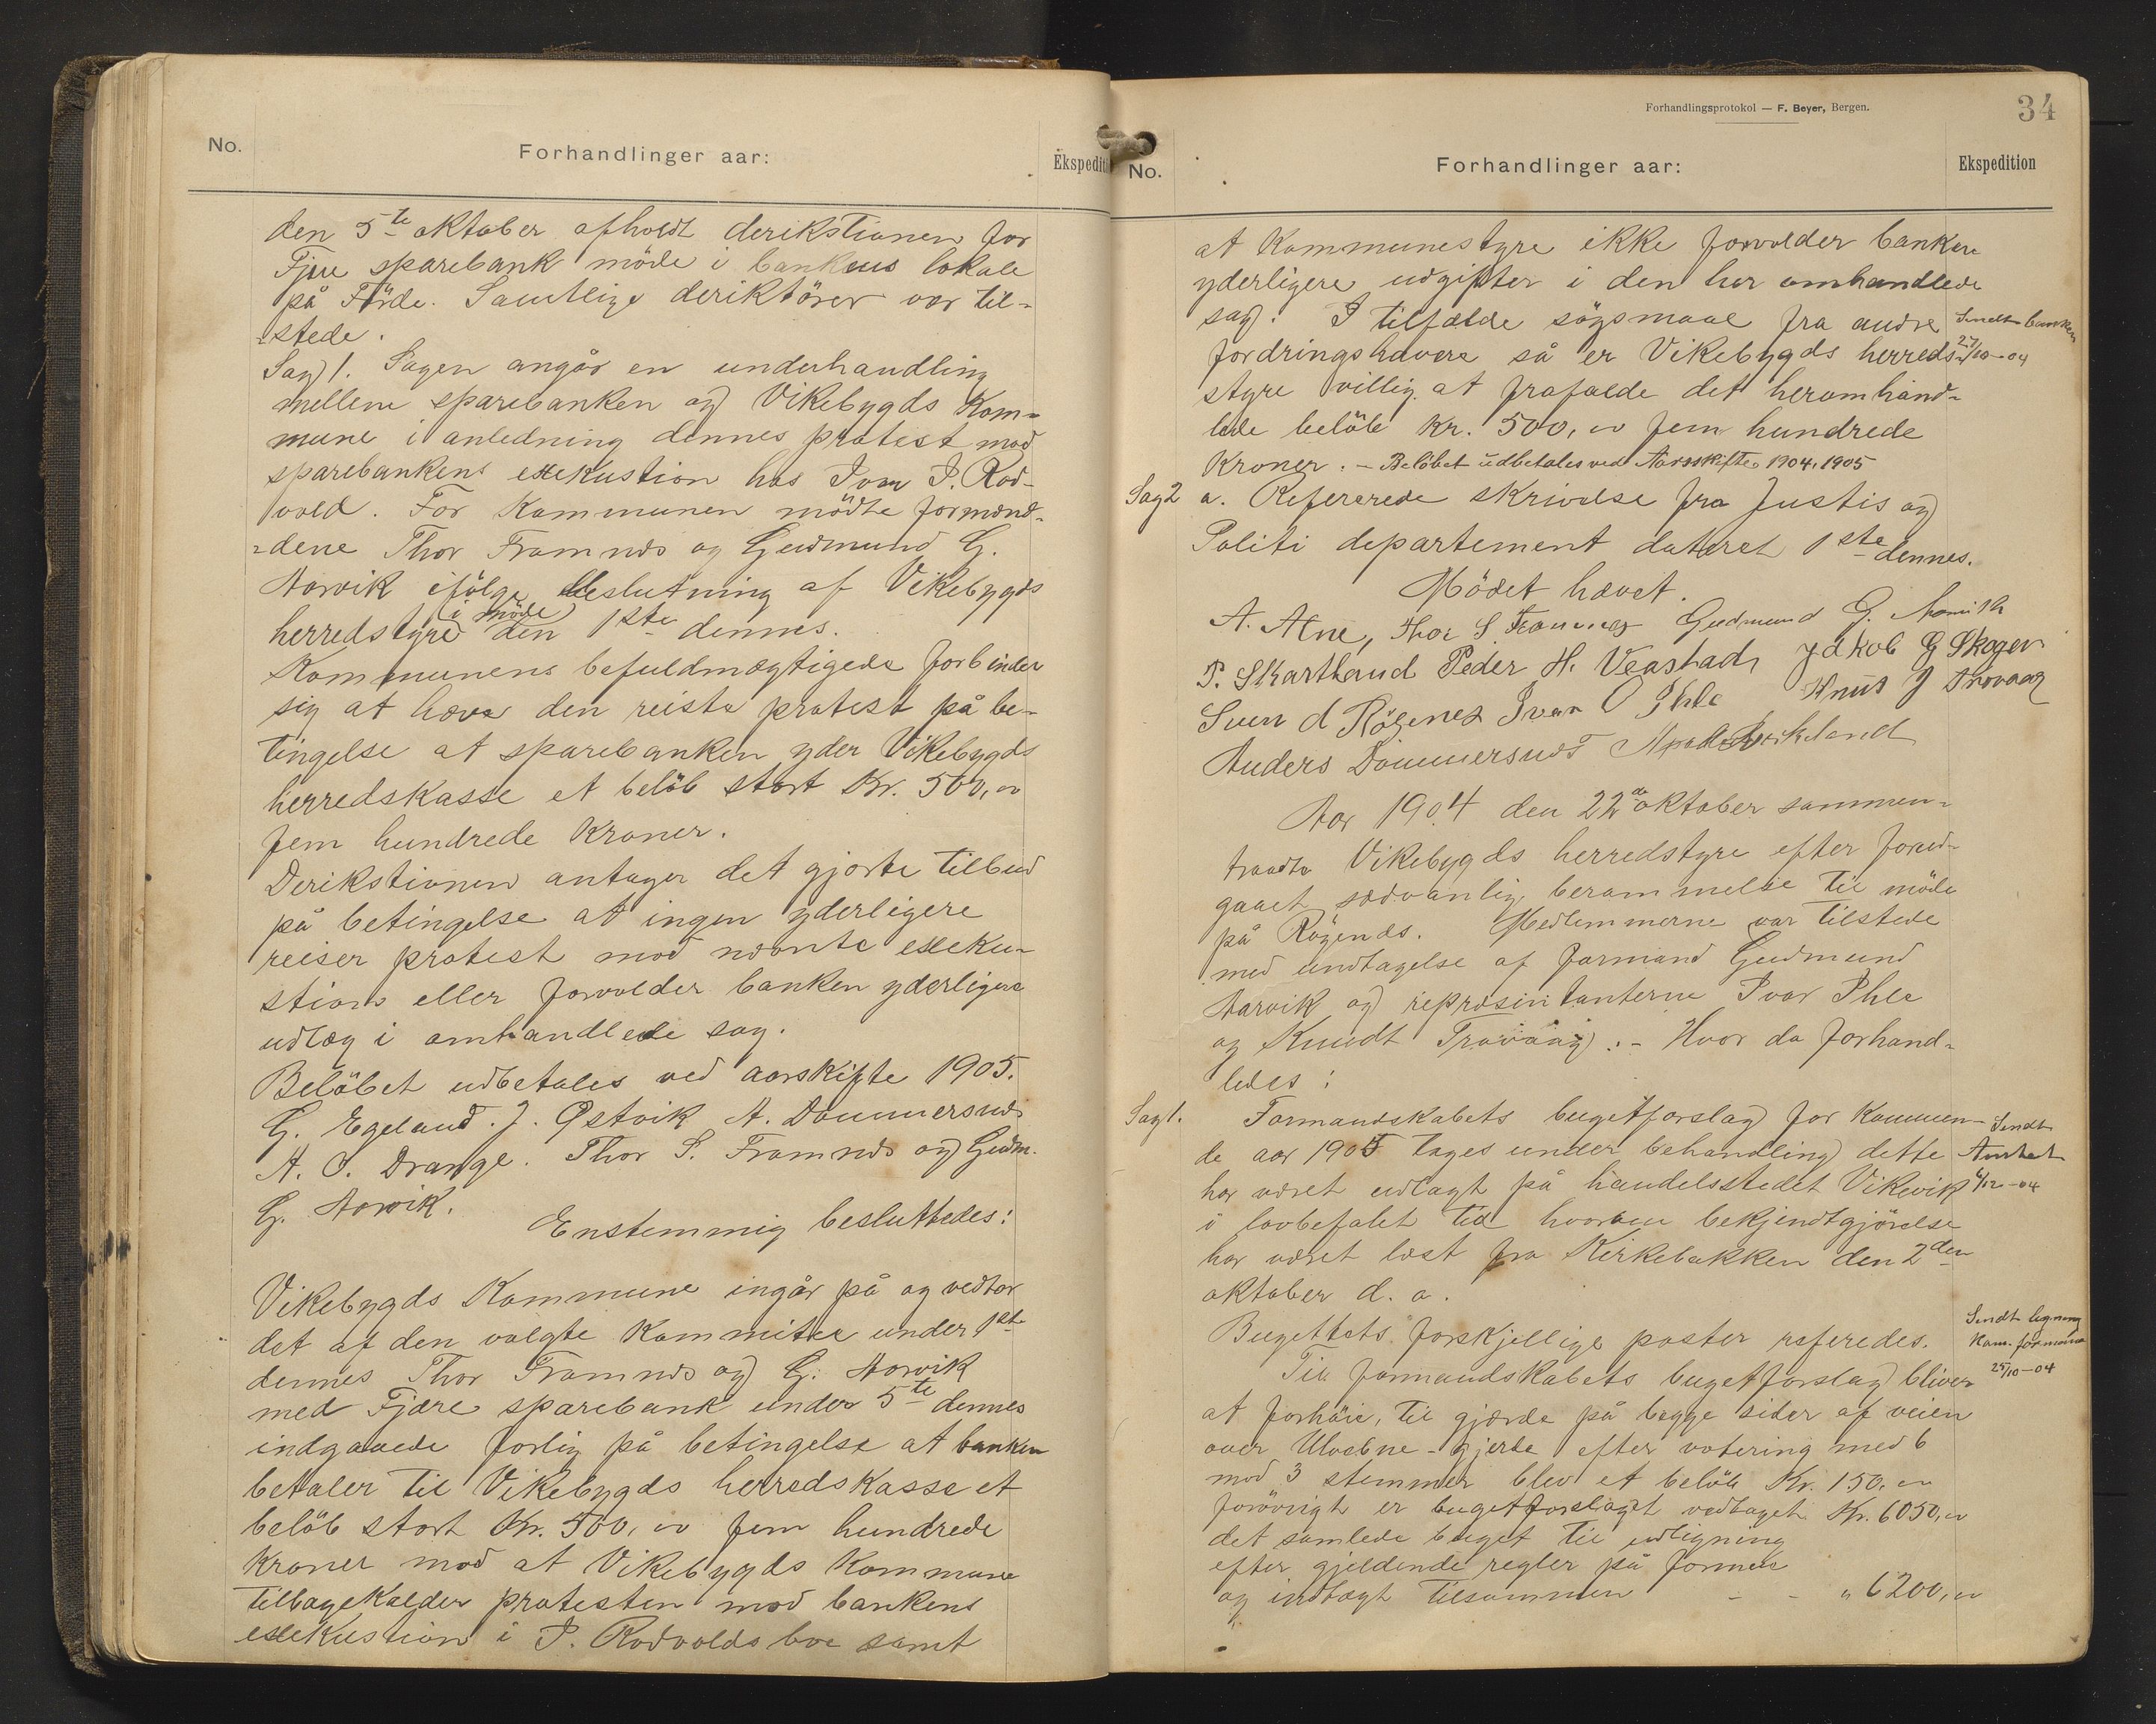 No.
Forhandlinger aar:
Ekspediti
den 5te oktober afholdt derikstionen for
Fjære sparebank möde i bankens lokale
på Förde. Samtlige deriktörer var til-
stede.
Sag 1. Sagen angår en underhandling
mellem sparebanken og Vikebygds Kom-
mune i anledning dennes protest mod
sparebankens exekustion hos Ivar I. Rod-
vold. For Kommunen mödte formænd-
dene Thor Framnæs og Gudmund G.
Aarvik ifölge beslutning af Vikebygds
i möde
herredstyre den 1ste dennes.
Kommunens befuldmægtigede forbinder
sig at hæve den reiste protest på be-
tingelse at sparebanken yder Vikebygds
herredskasse et belöb stort Kr. 500,00
fem hundrede Kroner.
Derikstionen antager det gjorte tilbud
på betingelse at ingen yderligere
reiser protest mod nævnte exeku-
stion eller forvolder banken yderligere
udlæg i omhandlede sag.
Belöbet udbetales ved aarskifte 1905.
G. Egeland. J. Østvik A. Dommersnæs
A. O. Drange. Thor S. Framnæs og Gudm.
G. Aarvik.
Enstemmig besluttedes:
Vikebygds Kommune ingår på og vedtar
det af den valgte Kommitee under 1ste
dennes Thor Framnæs og G. Aarvik
med Fjære sparebank under 5te dennes
indgaaede forlig på betingelse at banken
betaler til Vikebygds herredskasse et
belöb stort Kr. 500,00 fem hundrede
kroner mod at Vikebygds Kommune
tilbagekalder protesten mod bankens
exekustion i I. Rodvolds boe samt
Forhandlingsprotokol — F. Beyer, Bergen.
34
No.
Forhandlinger aar:
Ekspedition
at Kommunestyre ikke forvolder banken
yderligere udgifter i den her omhandlede
sag. I tilfælde sögsmaal fra andre
Sendt banken
27/10-04
fordringshavere så er Vikebygds herreds-
styre villig at frafalde det heromhand-
lede belöb Kr. 500,00 fem hundrede
Kroner. - Belöbet udbetales ved Aarsskifte 1904, 1905
Sag 2 a. Refererede skrivelse fra Justis og
Politi departement dateret 1ste dennes.
Mödet hævet.
A. Alne, Thor S. Framnæs Gudmund G. Aarvik
P. Skartland Peder H. Veastad, Jakob G Skogen
Sven d Rögenes Ivar O Ihle Knut J Trovaag
Anders Dommersnæs
Aar 1904 den 22de oktober sammen-
traadte Vikebygds herredstyre efter forud-
gaaet sædvanlig berammelse til möde
på Rögenæs. Medlemmerne var tilstede
med undtagelse af formand Gudmund
Aarvik og repræsintanterne Ivar Ihle
og Knudt Trovaag: - Hvor da forhand-
ledes:
Sag 1. Formandskabets bugetforslag for Kommen-
Sendt
Amtet
6/12-04
de aar 1905 tages under behandling dette
har været udlagt på handelsstedet Vikevik
i lovbefalet tid hvorom bekjendtgjörelse
har været læst fra Kirkebakken den 2den
oktober d. a.
Bugettets forskjellige poster referedes.
Sendt ligning
Kom. formand
25/10-04
Til formandskabets bugetforslag bliver
at forhöie, til gjærde på begge sider af veien
over -gjerde efter votering med 6
mod 3 stemmer blev et belöb Kr. 150,00
forövrigt er bugetforslaget vedtaget Kr. 6050,00
det samlede buget til udligning
efter gjeldende regler på formue
og indtægt tilsammen - - " 6200,00